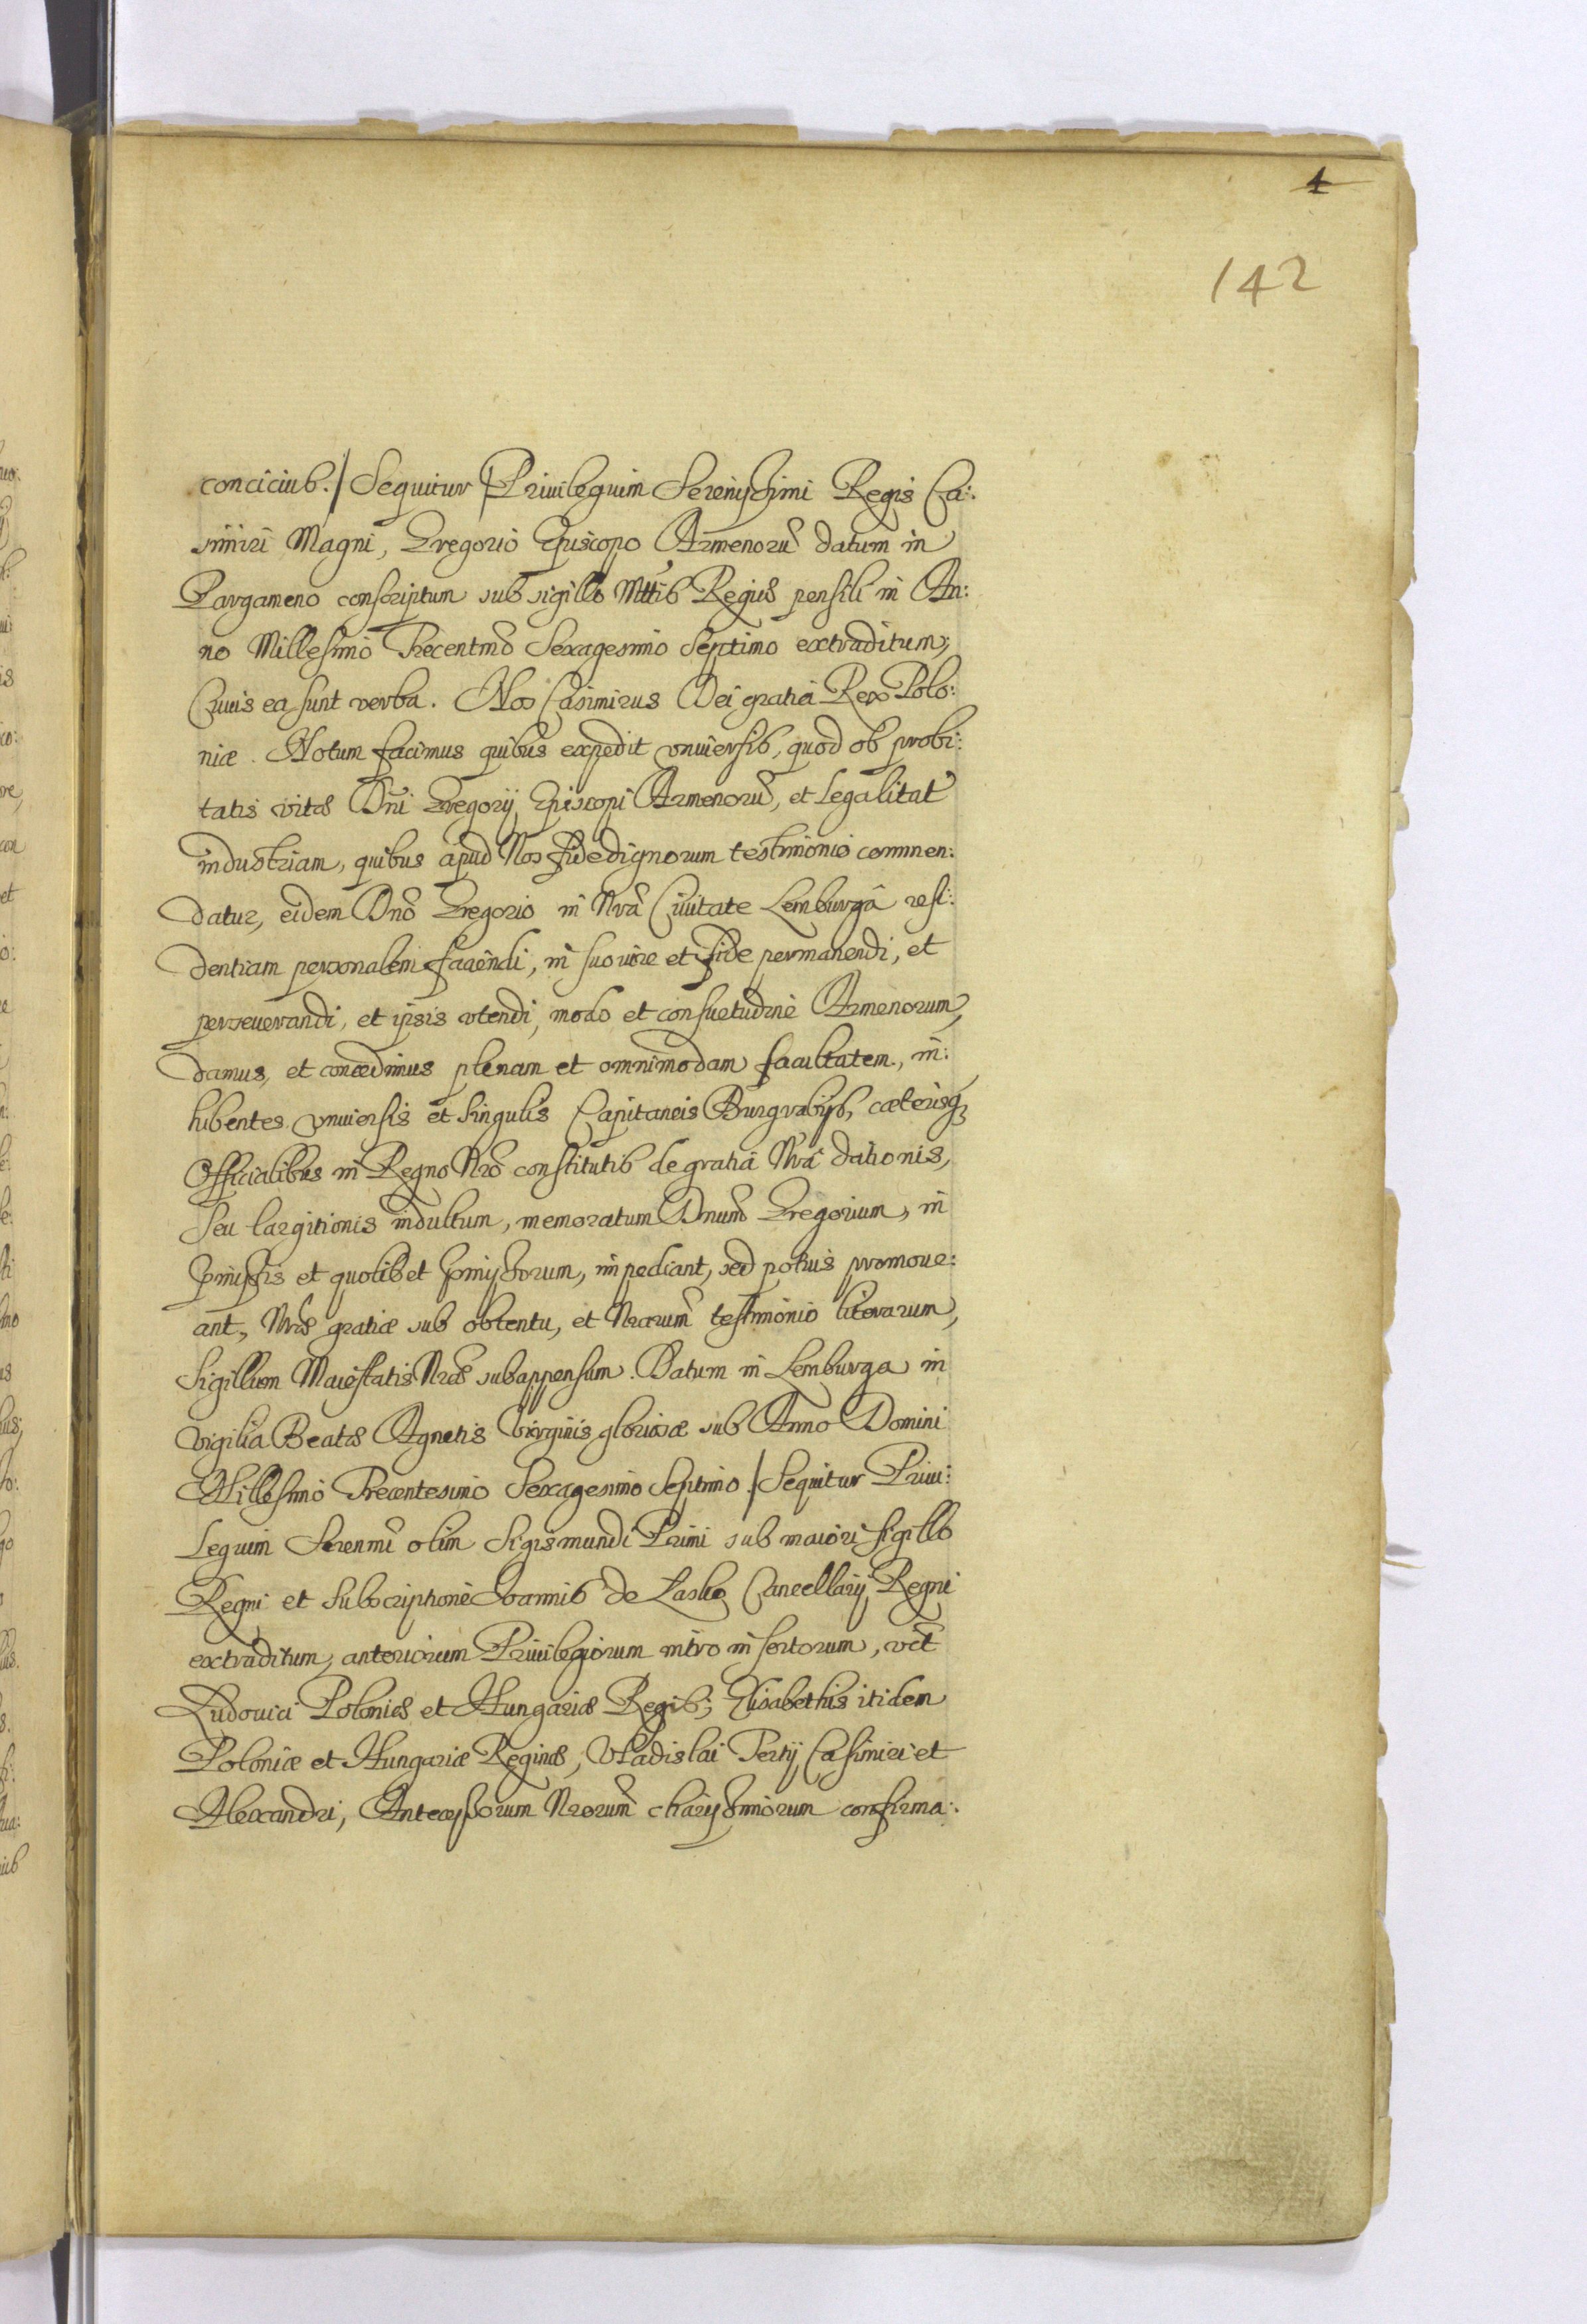 4
142
conciciub. / Sequitur Priuilegium Serenyssimi Regis Ca:
simiri Magni, Gregorio Episcopo Armenorũ datum in
Pargameno conscriptum sub sigillo Mttis Regiæ pensili in An:
no Millesimo Trecentmõ Sexagesimo Septimo extraditum,
Cuius ea sunt verba. Nos Casimirus Dei gratiâ Rex Polo:
niæ. Notum facimus quibus expedit vniuersis, quod ob probi:
tatis vitæ Dñi Gregorij Episcopi Armenorũ, et Legalitat
industriam, quibus apud Nos fidedignorum testimonio commen:
datur, eidem Dnõ Gregorio in Nrâ Ciuitate Lemburgâ resi:
dentiam personalem faciendi, in suo iure et fide permanendi, et
perseuerandi, et ipsis vtendi, modo et consuetudine Armenorum,
damus, et concedimus plenam et omnimodam facultatem, in:
hibentes vniuersis et singulis Capitaneis Burgrabijs, cæterisq
Officialibus in Regno Nrõ constitutis de gratiâ Nrâ dationis,
Seu largitionis indultum, memoratum Dnum̃ Gregorium, in
pmissis et quolibet pmyssorum, impediant, sed potius promoue:
ant, Nræ gratiæ sub obtentu, et Nrarum̃ testimonio literarum,
Sigillum Maiestatis Nræ subappensum. Datum in Lemburga in
vigilia Beatæ Agnetis Virginis gloriosæ sub Anno Domini
Millesimo Trecentesimo Sexagesimo Septimo. / Sequitur Priui:
Legium Serenmi olim Sigismundi Primi sub maiori sigillo
Regni et subscriptione Ioannis de Lasko Cancellarij Regni
extraditum, anteriorum Priuilegiorum intro insertorum, vct̃
Ludouici Poloniæ et Hungariæ Regis; Elisabethis itidem
Poloniæ et Hungariæ Reginæ, Vladislai Tertij Casimiri et
Alexandri, Antecessorum Nrorum̃ charyssimorum confirma: